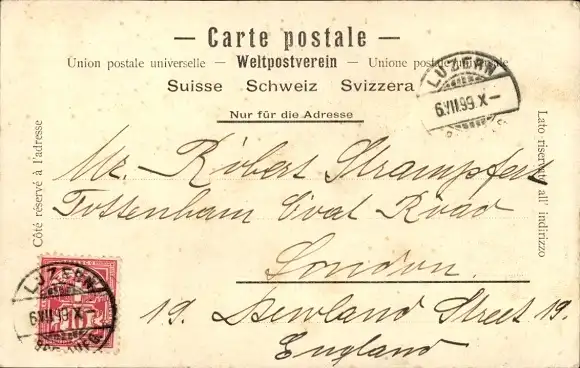 — Carte postale —
Union postale universelle — Weltpostverein — Unione postale universale
Suisse Schweiz Svizzera
Nur für die Adresse
Côté réservé à l'adresse
Lato riservato all' indirizzo
LUZERN
6.VII.99.X—
Mr. Robert Strampfert
Tottenham Court Road
London.
19. Newland Street 19.
England
LUZERN
6.VII.99.X—
10